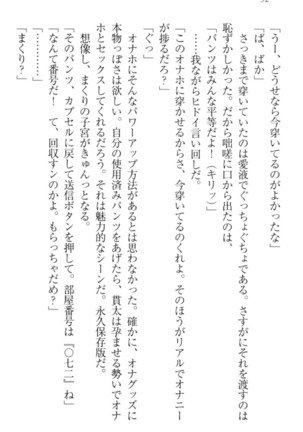 「うー、どうせなら今穿いてるのがよかったな」
「ば、ばか」
さっきまで穿いていたのは愛液でぐっちょぐちょである。さすがにそれを渡すのは
恥ずかしかった。だから咄嗟に口から出たのは、
「パンツはみんな平等だよ！（キリッ）」
……我ながらヒドイ言い回しだ。
「このオナホに穿かせるからさ、今穿いてるのくれよ。そのほうがリアルでオナニー
が捗るだろ？」
「ぐっ」
オナホにそんなパワーアップ方法があるとは思わなかった。確かに、オナグッズに
本物っぽさは欲しい。自分の使用済みパンツをあげたら、貫太は孕ませる勢いでオナ
ホとセックスしてくれるだろう。それは魅力的なシーンだ。永久保存版だ。
想像し、まくりの子宮がきゅんっとなる。
「そのパンツ、カプセルに戻して送信ボタンを押して。部屋番号は『〇七二』ね」
「なんて番号だ！ て、回収すンのかよ。もらっちゃだめ？」
「まくり？」